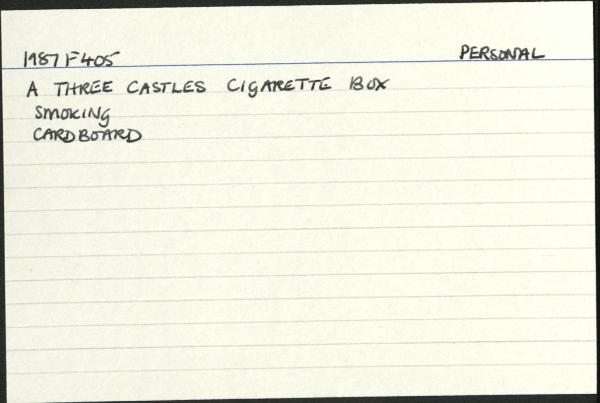 1987 F405 PERSONAL
A THREE CASTLES CIGARETTE BOX
SMOKING
CARDBOARD